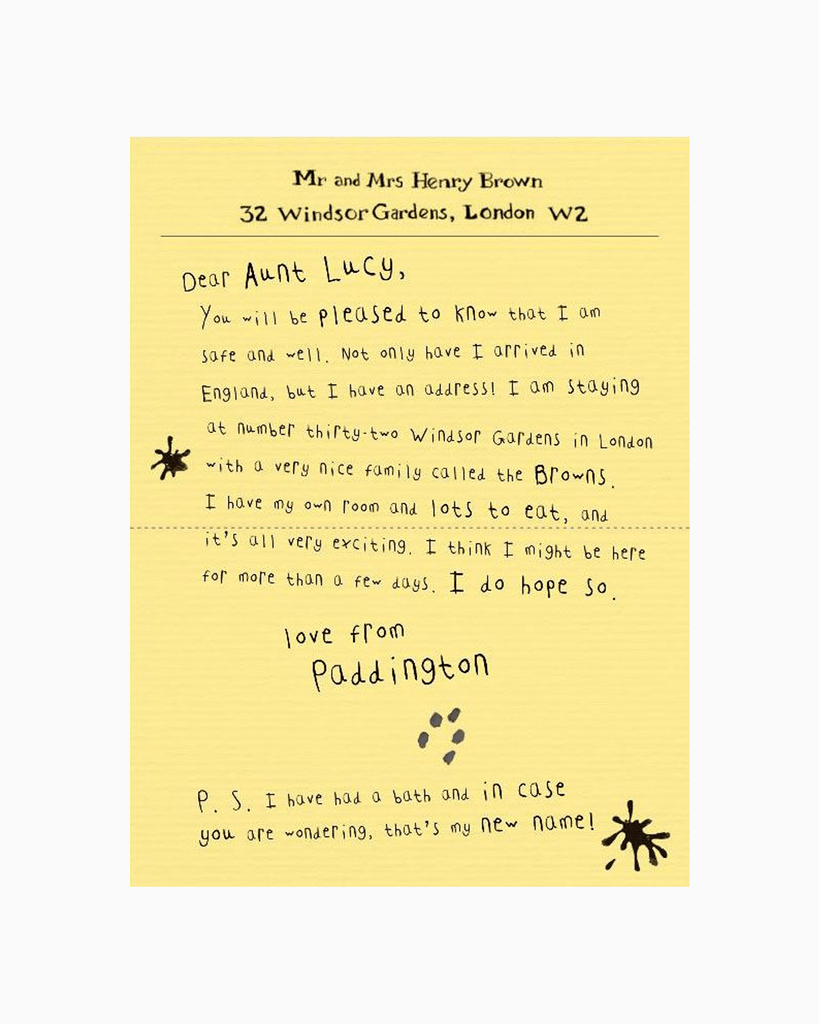 Mr and Mrs Henry Brown
32 Windsor Gardens, London W2
Dear Aunt Lucy,
You will be pleased to know that I am
safe and well. Not only have I arrived in
England, but I have an address! I am staying
at number thirty-two Windsor Gardens in London
with a very nice family called the Browns.
I have my own room and lots to eat, and
it's all very exciting. I think I might be here
for more than a few days. I do hope so.
love from
Paddington
P. S. I have had a bath and in case
you are wondering, that's my new name!